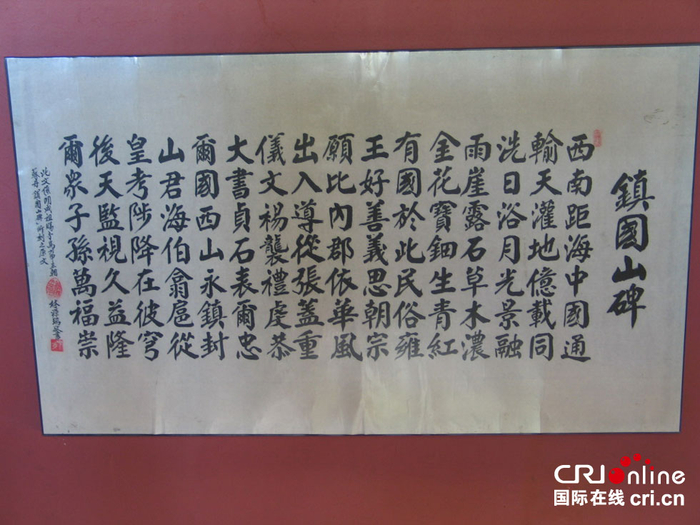 鎮國山碑
西南距海中國通
輸天灌地億載同
洗日浴月光景融
雨崖露石草木濃
金花寶鈿生青紅
有國於此民俗雍
王好善義思朝宗
願比內郡依華風
出入導從張蓋重
儀文裼襲禮虔恭
大書貞石表爾忠
爾國西山永鎮封
山君海伯翕扈從
皇考陟降在彼穹
後天監視久益隆
爾眾子孫萬福崇
CRI online
国际在线 cri.cn